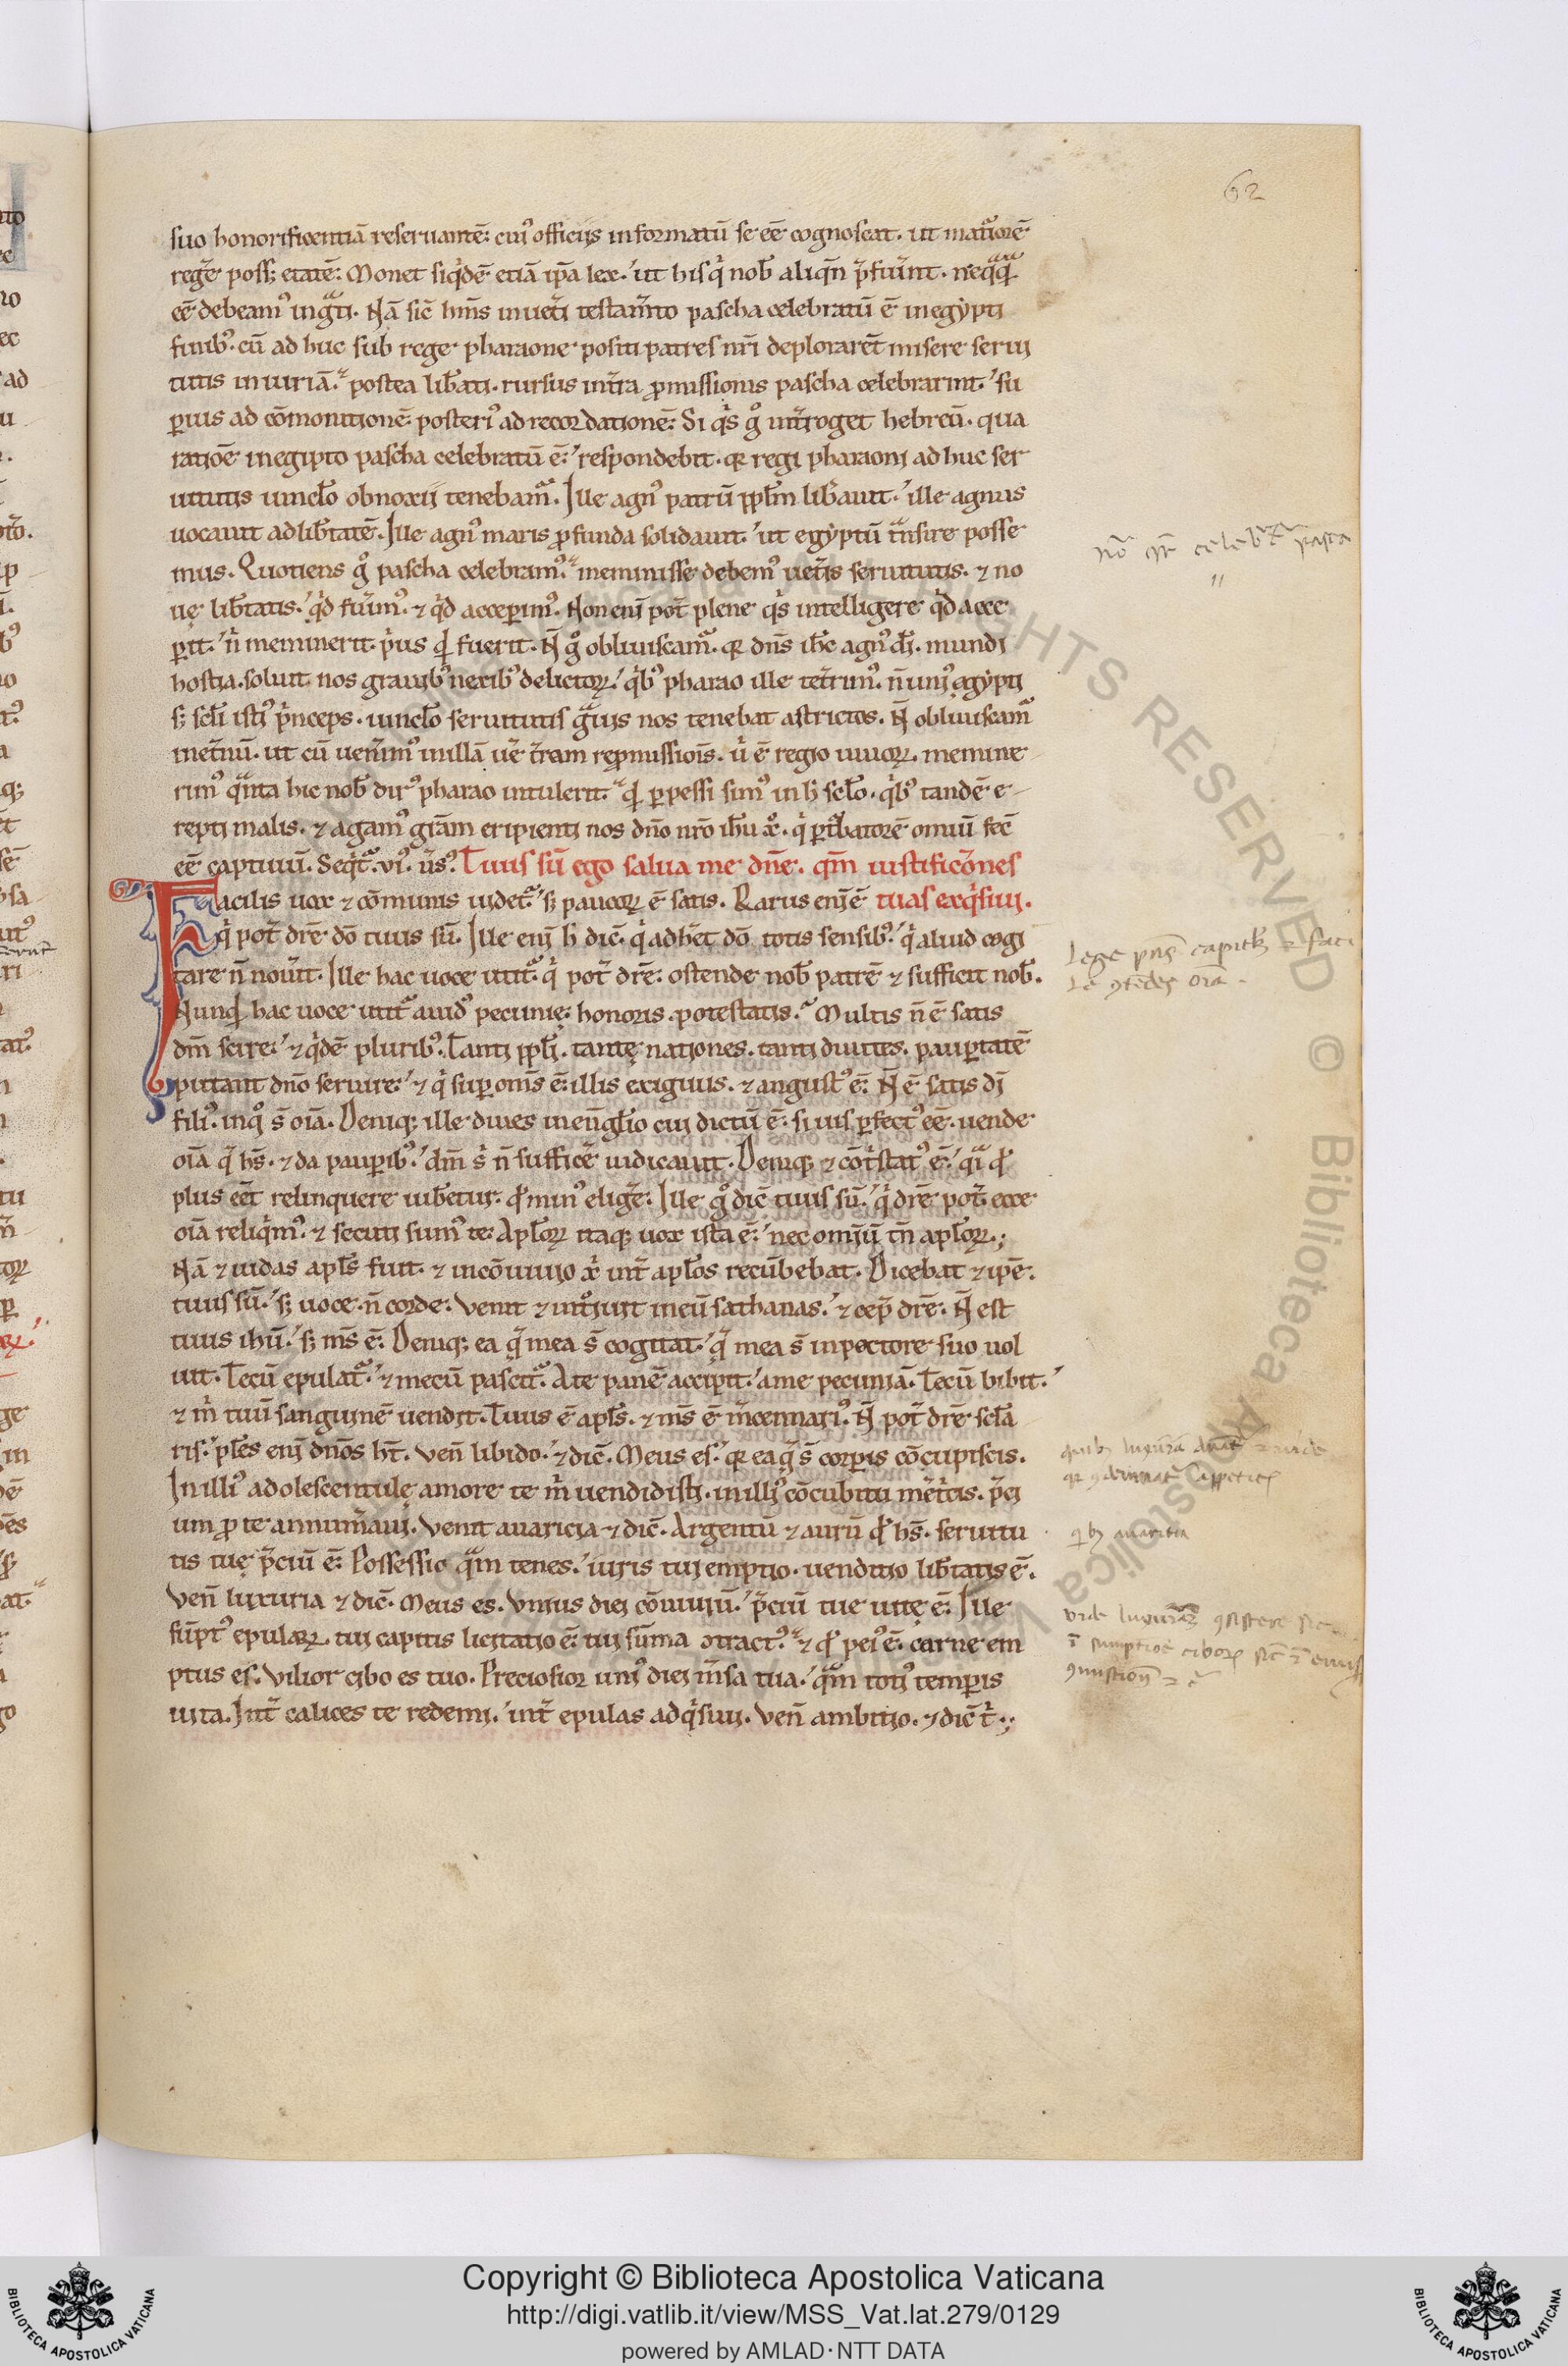 62
suo honorificentiā reseruantē: cui᷒ officijs informatū se eē cognoscat. ut maturiorē
reg̃e poss; etatē: Monet siqͥdē etiā ip̄a lex. ut his qͥ nob̄ aliqn̄ p̄fuer̃t. neqq̃
eē debeam᷒ ingͣti. Nā sic̄ hm̃s in uet̃i testam̃to pascha celebratū ē in egẏpti
finib᷒. cū ad huc sub rege pharaone positi patres nr̄i deplorarēt misere serui
tutis iniuriā. postea lib̄ati. rursus in t̃ra ꝓmissionis pascha celebrarint. su
ꝑius ad cōmonitionē: posteri᷒ ad recordationē: Si qͥs gͦ int̃roget hebreū. qua
ratiōe in egipto pascha celebratū ē: respondebit. qꝛ regi pharaoni ad huc ser
uitutis uincl̄o obnoxii tenebamͬ. Ille agn᷒ patrū ppl̄m lib̄auit. ille agnus
uocauit ad lib̄tatē. Ille agn᷒ maris ꝓfunda solidauit. ut egẏptū tͣnsire posse
mus. Quotiens gͦ pascha celebram᷒. meminisse debem᷒ uet̃is seruitutis. ⁊ no
uę lib̄tatis. qͥd fuim᷒. ⁊ qͥd acceꝑim᷒. Non eni pot̃ plene qͥs intelligere qͥd acce
ꝑit. nͥ meminerit pͥus qͥd fuerit. N̄ gͦ obliuiscamͬ. qꝛ dn̄s ih̄c agn᷒ dī. mundi
hostia. soluit nos grauib᷒ nexib᷒ delictoꝝ. qͥb᷒ pharao ille tet̃rim᷒. n̄ uni᷒ egẏpti
s; scl̄i isti᷒ pͥnceps. uincl̄o seruitutis gͣuis nos tenebat astrictos. N̄ obliuiscamͬ
ut cū uenim᷒ in illā uē t̃ram reꝓmissiōis. uͥ ē regio uiuoꝝ. memine
rim᷒ qͣnta hic nob̄ dir᷒ pharao intulerit. qͥd ꝑpessi sim᷒ in h̄ scl̄o. qͥb᷒ tandē e
repti malis. ⁊ agam᷒ gr̄am eripienti nos dn̄o nr̄o ih̄u xͦ. qͥ ꝑt̃batorē omiū fec̄
eē captiuū. Seqͭͬ. vi᷒. ũs᷒. Tuus sū ego salua me dn̄e. qm̄ iustificōnes
Facilis uox ⁊ cōmunis uidetͬ. s; paucoꝝ ē satis. Rarus eni ē tuas exqͥsiui.
qͥ pot̃ dr̄e dō tuus sū. Ille eni h̄ dic̄. qͥ adh̄et dō totis sensib᷒. qͥ aliud cogi
tare n̄ nouit. Ille hac uoce utitͬ. qͥ pot̃ dr̄e: ostende nob̄ patrē ⁊ sufficit nob̄.
Nunqͥd hac uoce utitͬ auid᷒ pecunię: honoris. potestatis. Multis n̄ ē satis
dm̄ scire. ⁊ qͥdē plurib᷒. Tanti ppl̄i. tantę nationes. tanti diuites. pauꝑtatē
putant dn̄o seruire. ⁊ qͥ suꝑ om̄s ē: illis exiguus. ⁊ angust᷒ ē: N̄ ē satis dī
fili᷒. in qͦ s̄ oīa. Deniq; ille diues in eun̄gl̄io cui dictū ē: si uis ꝑfect᷒ eē. uende
oīa q̄ hs̄. ⁊ da pauꝑib᷒. dm̄ sͥ n̄ sufficē iudicauit. Deniq; ⁊ cōt̃stat᷒ ē. qͣi qͦd
plus eēt relinquere iub̄etur. qͦd min᷒ elig̃e. Ille gͦ dic̄ tuus sū. qͥ dr̄e pot̃ ecce
oīa reliqͥm᷒. ⁊ secuti sum᷒ te. Apl̄oꝝ itaq; uox ista ē: nec omiū tn̄ apl̄oꝝ.
Nā ⁊ iudas apl̄s fuit. ⁊ in cōuiuio xͥ int̃ apl̄os recūbebat. Dicebat ⁊ ip̄e.
tuus sū. s; uoce. n̄ corde. Venit ⁊ intͦiuit in eū sathanas. ⁊ cep̄ dr̄e. N̄ est
tuus ih̄u. s; ms̄ ē: Deniq; ea q̄ mea s̄ cogitat. q̄ mea s̄ in pectore suo uol
uit. Tecū epulatͬ. ⁊ mecū pascitͬ. A te panē accipit. a me pecuniā. Tecū bibit.
⁊ mͥ tuū sanguinē uendit. Tuus ē apl̄s. ⁊ ms̄ ē m̃cennari᷒. N̄ pot̃ dr̄e scl̄a
ris. pl̄es eni dn̄os ht̄. Ven̄ libido. ⁊ dic̄. Meus es. qꝛ ea q̄ s̄ corꝑis cōcupiscis.
In illi᷒ adolescentulę amore te mͥ uendidisti. in illi᷒ cōcubitu m̃et̃cis. p̄ci
um ꝓ te annum̃aui. Venit auaricia ⁊ dic̄. Argentū ⁊ aurū qͦd hs̄. seruitu
tis tuę p̄ciū ē: Possessio qͣm tenes. iuris tui emptio. uenditio lib̄tatis ē.
Ven̄ luxuria ⁊ dic̄. Meus es. Vnius diei cōuiuiū. p̄ciū tue uitę ē: Ille
sūpt᷒ epulaꝝ. tui capitis licitatio ē: tui sūma ɔtract᷒. ⁊ qͦd pei᷒ ē: carne em
ptus es. Vilior cibo es tuo. Preciosior uni᷒ diei m̃sa tua. qͣm toti᷒ temꝑis
uita. Int̃ calices te redemi. int̃ epulas adqͥsiui. Ven̄ ambitio. ⁊ dic̄ tͥ.
Lege capitl̄
oīa
qͥ auaritia
Copyright © Biblioteca Apostolica Vaticana
http://digi.vatlib.it/view/MSS_Vat.lat.279/0129
powered by AMLAD·NTT DATA
BIBLIOTECA APOSTOLICA VATICANA
BIBLIOTECA APOSTOLICA VATICANA
ALL RIGHTS RESERVED © Biblioteca Apostolica Vaticana